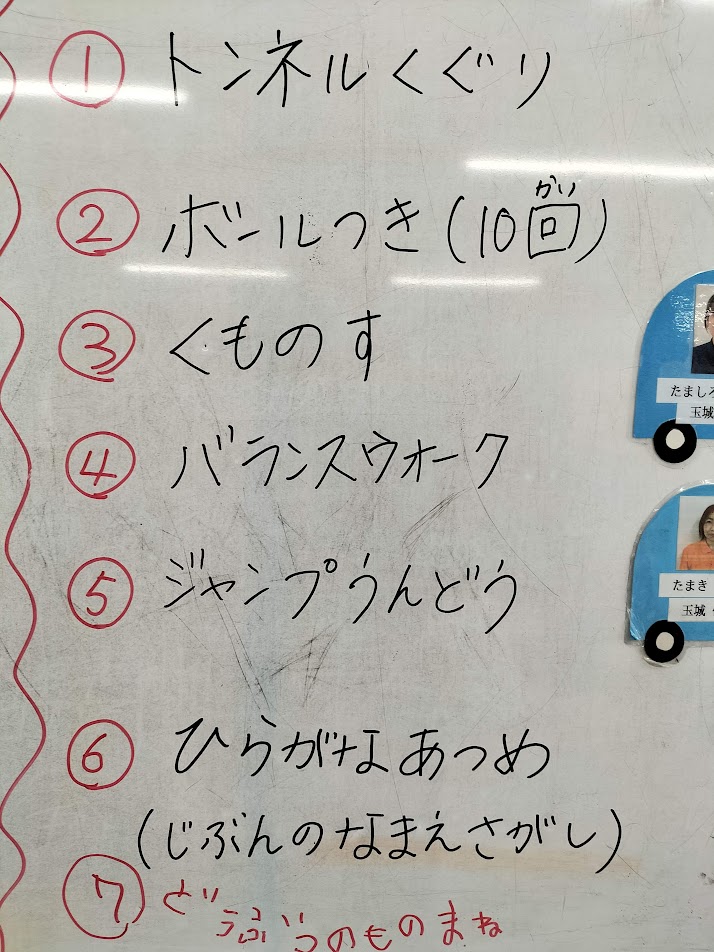 ① トンネルくぐり
かい
② ボールつき(10回)
③ くものす
たましろ
玉城
④ バランスウォーク
⑤ ジャンプうんどう
たまき
玉城
⑥ ひらがなあつめ
(じぶんのなまえさがし)
⑦ どうぶつのものまね